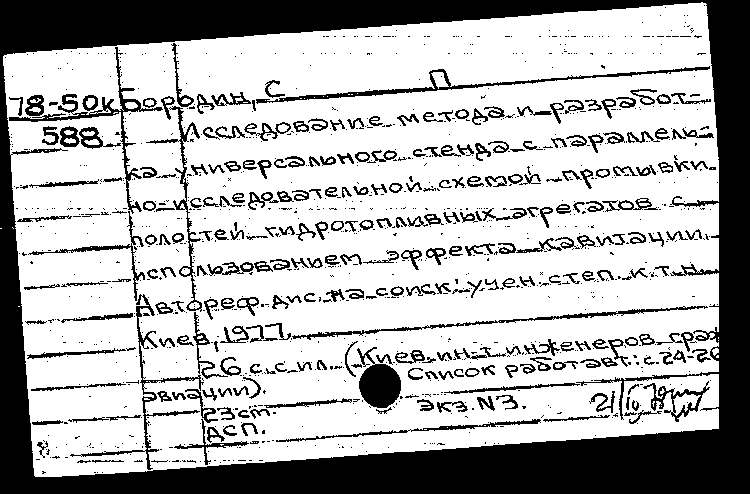 78-50к Бородин, С П
588 Исследование метода и разработ-
ка универсального стенда с параллель-
но-исследовательной схемой промывки
полостей гидротопливных агрегатов с
использованием эффекта кавитации.
Автореф. дис. на соиск. учен. степ. к.т.н.
Киев, 1977.
26 с. с ил. (Киев. ин-т инженеров граж
авиации). Список работ авт.: с. 24-26
23 ст. экз. N3. 21/IV 78
ДСП.